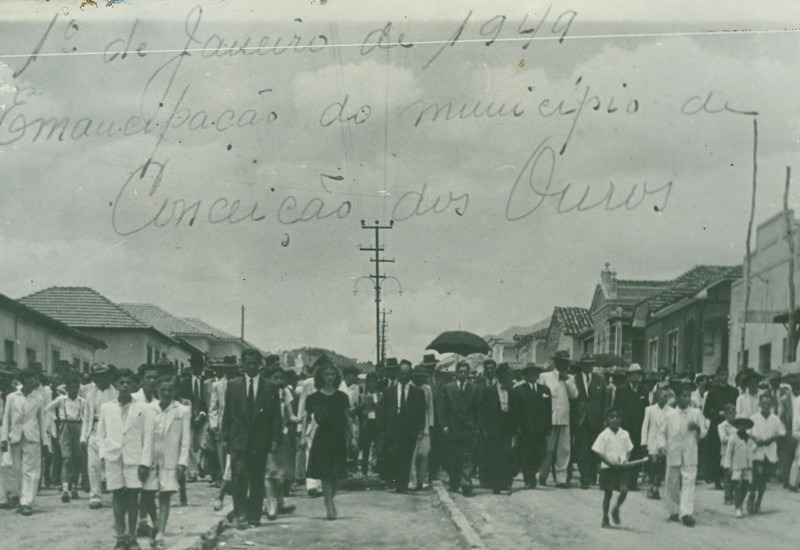 1º de Janeiro de 1949
Emancipação do município de
Conceição dos Ouros